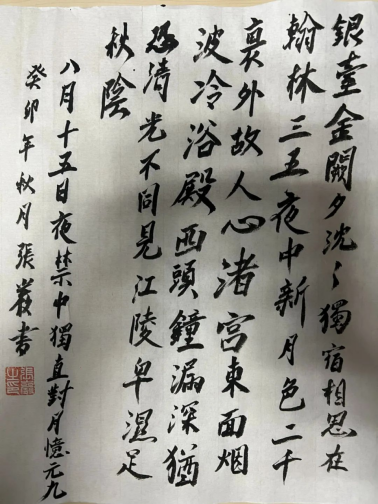 銀臺金闕夕沈〻獨宿相思在
翰林三五夜中新月色二千
裏外故人心渚宮東面烟
波冷浴殿西頭鐘漏深猶
恐清光不同見江陵卑濕足
秋陰
八月十五日夜禁中獨直對月憶元九
癸卯年秋月張書